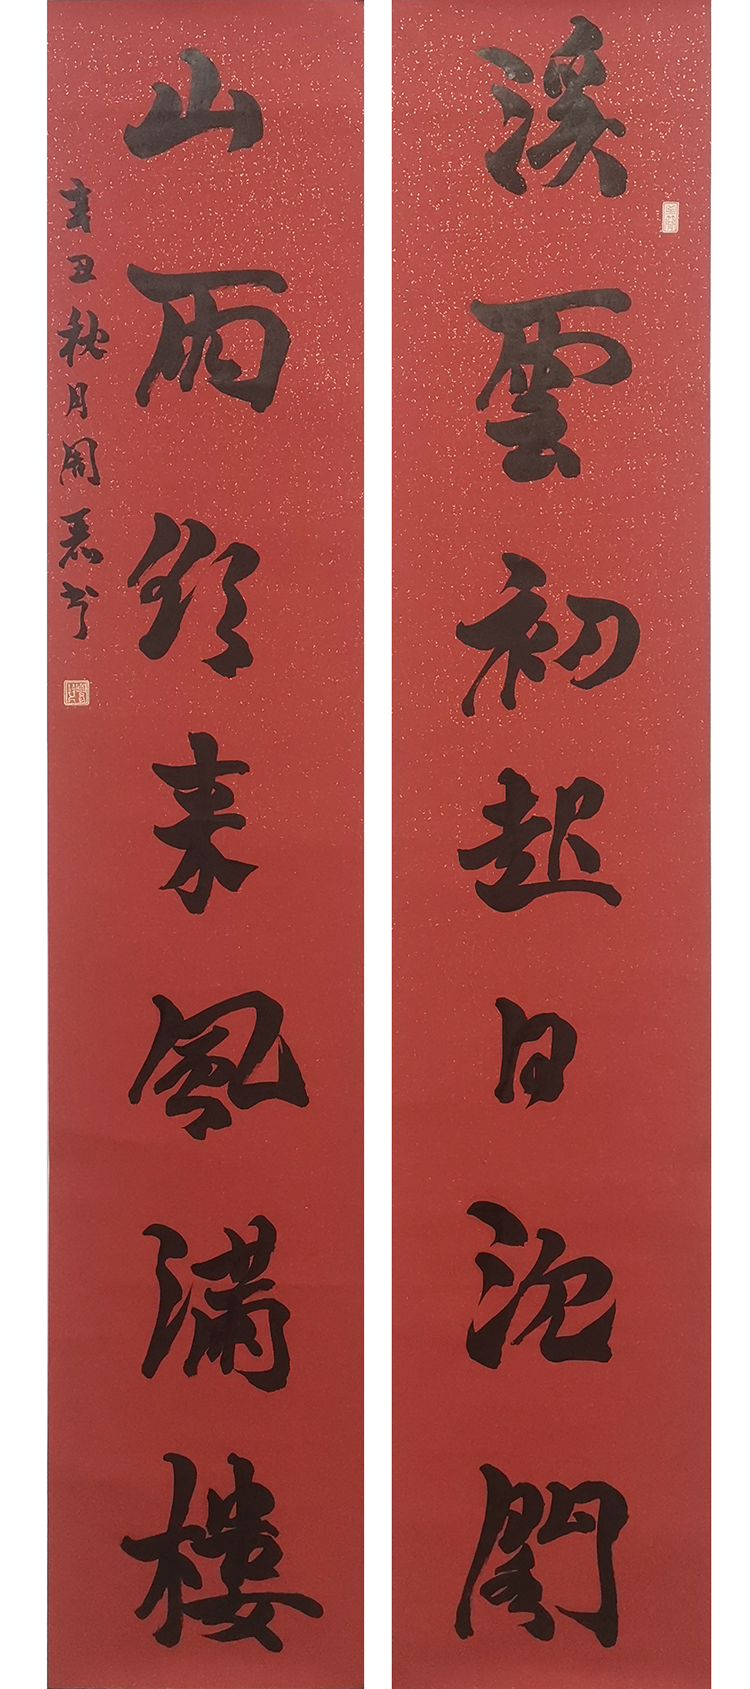 溪雲初起日沈閣
山雨欲来風滿樓
辛丑秋月周思书